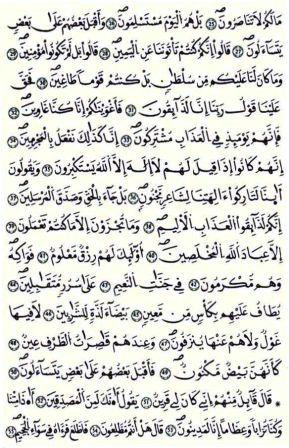 مَا لَكُمْ لَا تَنَاصَرُونَ ٢٥ بَلْ هُمُ الْيَوْمَ مُسْتَسْلِمُونَ ٢٦ وَأَقْبَلَ بَعْضُهُمْ عَلَىٰ بَعْضٍ
يَتَسَاءَلُونَ ٢٧ قَالُوا إِنَّكُمْ كُنتُمْ تَأْتُونَنَا عَنِ الْيَمِينِ ٢٨ قَالُوا بَل لَّمْ تَكُونُوا مُؤْمِنِينَ ٢٩
وَمَا كَانَ لَنَا عَلَيْكُم مِّن سُلْطَانٍ بَلْ كُنتُمْ قَوْمًا طَاغِينَ ٣٠ فَحَقَّ
عَلَيْنَا قَوْلُ رَبِّنَا إِنَّا لَذَائِقُونَ ٣١ فَأَغْوَيْنَاكُمْ إِنَّا كُنَّا غَاوِينَ ٣٢
فَإِنَّهُمْ يَوْمَئِذٍ فِي الْعَذَابِ مُشْتَرِكُونَ ٣٣ إِنَّا كَذَٰلِكَ نَفْعَلُ بِالْمُجْرِمِينَ ٣٤
إِنَّهُمْ كَانُوا إِذَا قِيلَ لَهُمْ لَا إِلَٰهَ إِلَّا اللَّهُ يَسْتَكْبِرُونَ ٣٥ وَيَقُولُونَ
أَئِنَّا لَتَارِكُوا آلِهَتِنَا لِشَاعِرٍ مَّجْنُونٍ ٣٦ بَلْ جَاءَ بِالْحَقِّ وَصَدَّقَ الْمُرْسَلِينَ ٣٧
إِنَّكُمْ لَذَائِقُوا الْعَذَابِ الْأَلِيمِ ٣٨ وَمَا تُجْزَوْنَ إِلَّا مَا كُنتُمْ تَعْمَلُونَ ٣٩
إِلَّا عِبَادَ اللَّهِ الْمُخْلَصِينَ ٤٠ أُولَٰئِكَ لَهُمْ رِزْقٌ مَّعْلُومٌ ٤١ فَوَاكِهُ
وَهُم مُّكْرَمُونَ ٤٢ فِي جَنَّاتِ النَّعِيمِ ٤٣ عَلَىٰ سُرُرٍ مُّتَقَابِلِينَ ٤٤
يُطَافُ عَلَيْهِم بِكَأْسٍ مِّن مَّعِينٍ ٤٥ بَيْضَاءَ لَذَّةٍ لِّلشَّارِبِينَ ٤٦ لَا فِيهَا
غَوْلٌ وَلَا هُمْ عَنْهَا يُنزَفُونَ ٤٧ وَعِندَهُمْ قَاصِرَاتُ الطَّرْفِ عِينٌ ٤٨
كَأَنَّهُنَّ بَيْضٌ مَّكْنُونٌ ٤٩ فَأَقْبَلَ بَعْضُهُمْ عَلَىٰ بَعْضٍ يَتَسَاءَلُونَ ٥٠
قَالَ قَائِلٌ مِّنْهُمْ إِنِّي كَانَ لِي قَرِينٌ ٥١ يَقُولُ أَئِنَّكَ لَمِنَ الْمُصَدِّقِينَ ٥٢ أَئِذَا مِتْنَا
وَكُنَّا تُرَابًا وَعِظَامًا أَئِنَّا لَمَدِينُونَ ٥٣ قَالَ هَلْ أَنتُم مُّطَّلِعُونَ ٥٤ فَاطَّلَعَ فَرَآهُ فِي سَوَاءِ الْجَحِيمِ ٥٥